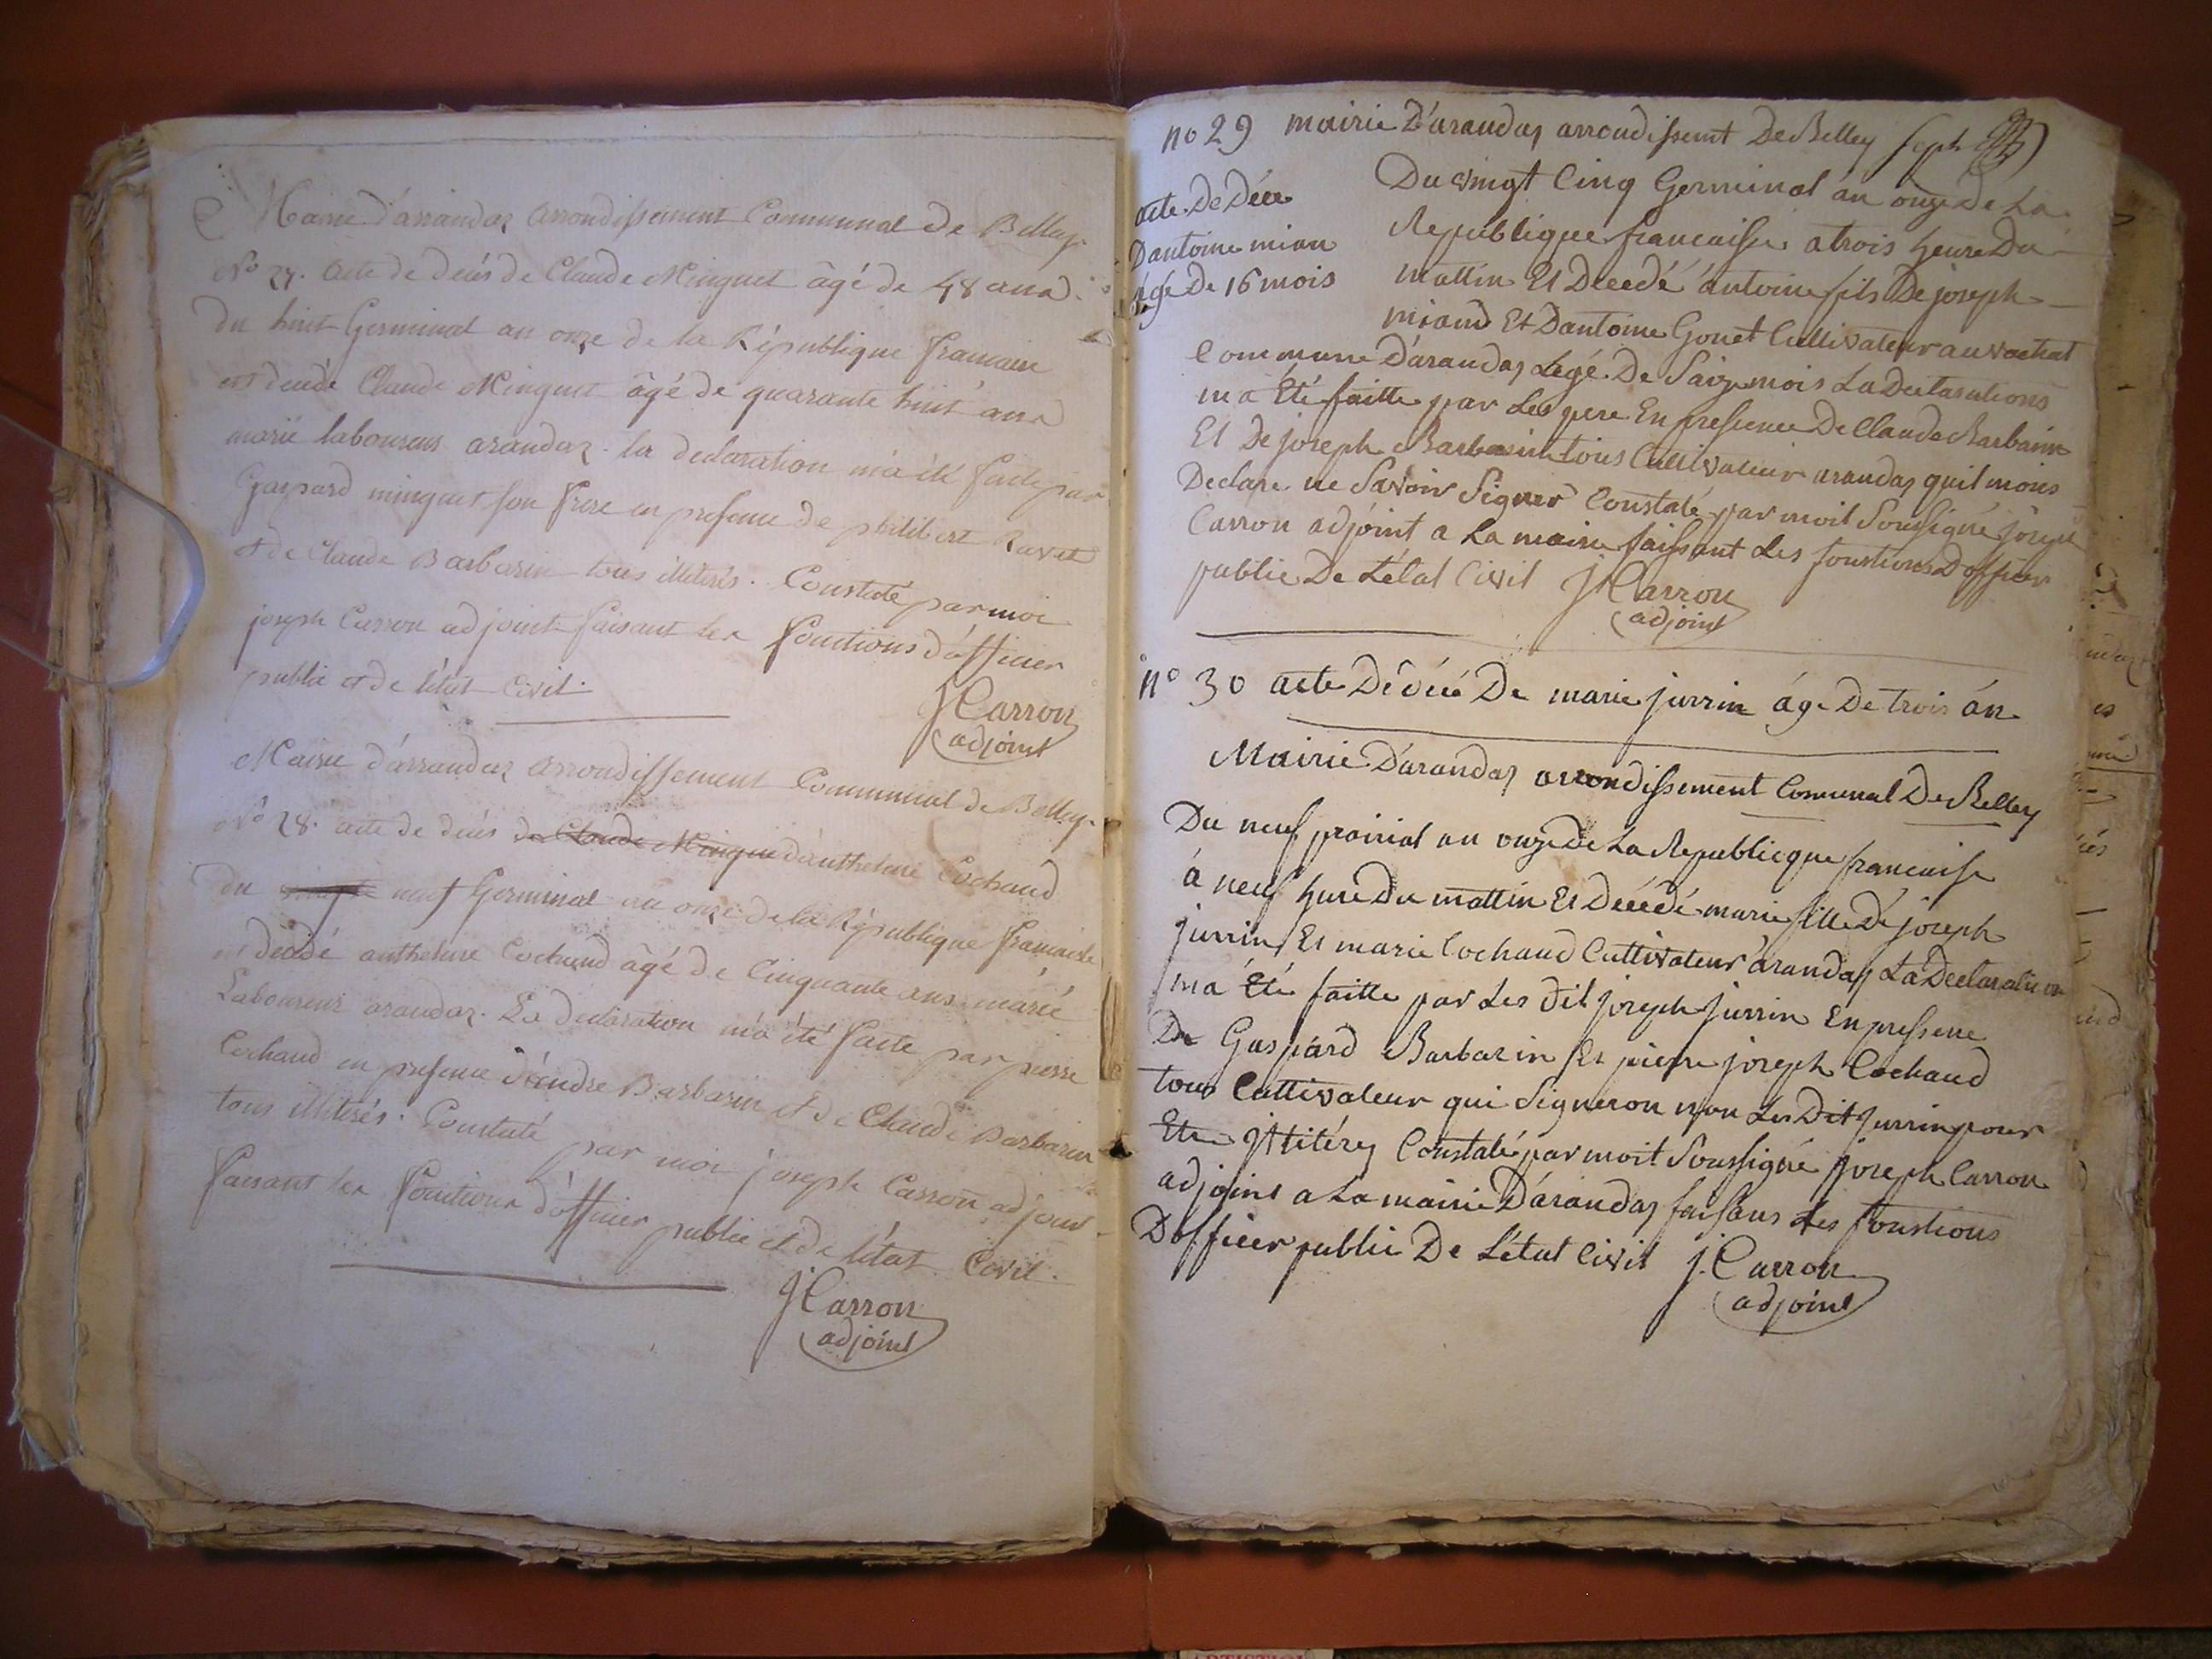 Mairie d'arrandaz arrondissement Communal de Belley.
N° 27. acte de decés de Claude Minguet âgé de 48 ans.
du huit Germinal an onze de la République francaise
est decédé Claude Minguet âgé de quarante huit ans
marié laboureur arandaz. la declaration m'a été faite par
Gaspard minguet son frere en presence de philibert Ravet
et de Claude Barbarin tous illiterés. Constaté par moi
joseph Carron adjoint faisant les fonctions d'officier
public et de l'état Civil.
J Carron
adjoint
Mairie d'arrandaz arrondissement Communal de Belley.
N° 28. acte de decés de Claude Mingue d'anthelme Cochand
du neuf Germinal an onze de la République francaise
est decédé anthelme Cochand âgé de Cinquante ans marié
Laboureur arandaz. La declaration m'a été faite par pierre
Cochand en presence d'andre Barbarin et de Claude Barbarin
tous illiterés. Constaté par moi joseph Carron adjoint
faisant les fonctions d'officier public et de l'état Civil.
J Carron
adjoint
no 29 mairie D'arandaz arrondissemt De Belley
acte De Déce
Dantoine mian
agé De 16 mois
Du vingt Cinq Germinal án onze De La
Republique francaisse a trois heure Du
mattin Et Decedé ántoine fils De joseph
miand Et Dantoine Gonet Cultivateur au vachat
Commune D'arandaz Lágé De Saize mois La Declarations
m'a Eté faitte par Les pere En pressence De Claude Barbarin
Et De joseph Barbarin tous Cultivateur arandaz quil mons
Declare ne Savoir Signer Constaté par moit Soussigné joseph
Carron adjoint a La mairie faissant Les fonstions D'officier
public De L'état Civil J Carron
adjoint
n° 30 acte De décé De marie jurrin áge De trois án
Mairie D'arandaz arrondissement Comunal De Belley
Du neuf prairial an onze De La Republicque francaise
á neuf hure Du mattin Et Décedé marie fille De joseph
jurrin Et marie Cochaud Cultivateur arandaz La Declaration
m'a Eté faitte par Les dit joseph jurrin En pressene
De Gaspard Barbarin Et pierre joseph Cochaud
tous Cultivateur qui Signeron non Les Dit jurrin pour
Etre Ititéré Constaté par moit Soussigné joseph Carron
adjoint a La mairie D'arandaz faisans Les fonstions
Dofficier public De L'état Civil J. Carron
adjoint